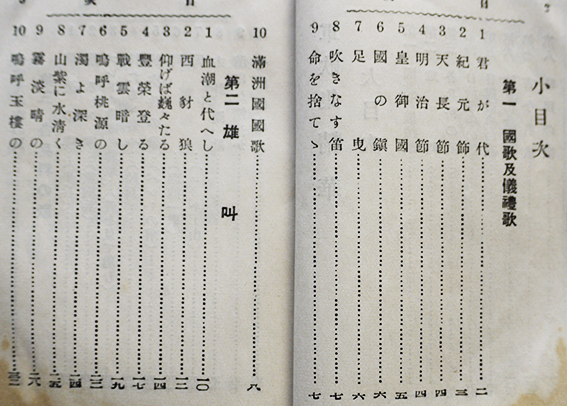 小目次
第一 國歌及儀禮歌
1 君が代 二
2 紀元節 三
3 天長節 四
4 明治節 四
5 皇御國 五
6 國の鎭 六
7 足曳 六
8 吹きなす笛 七
9 命を捨てゝ 七
10 滿洲國國歌 八
第二 雄叫
1 血潮と代へし 一〇
2 西豺狼 一二
3 仰げば巍々たる 一三
4 豐榮登る 一七
5 戰雲暗し 一九
6 嗚呼桃源の
7 濁よ深き
8 山紫に水清く
9 霧淡晴の
10 嗚呼玉樓の